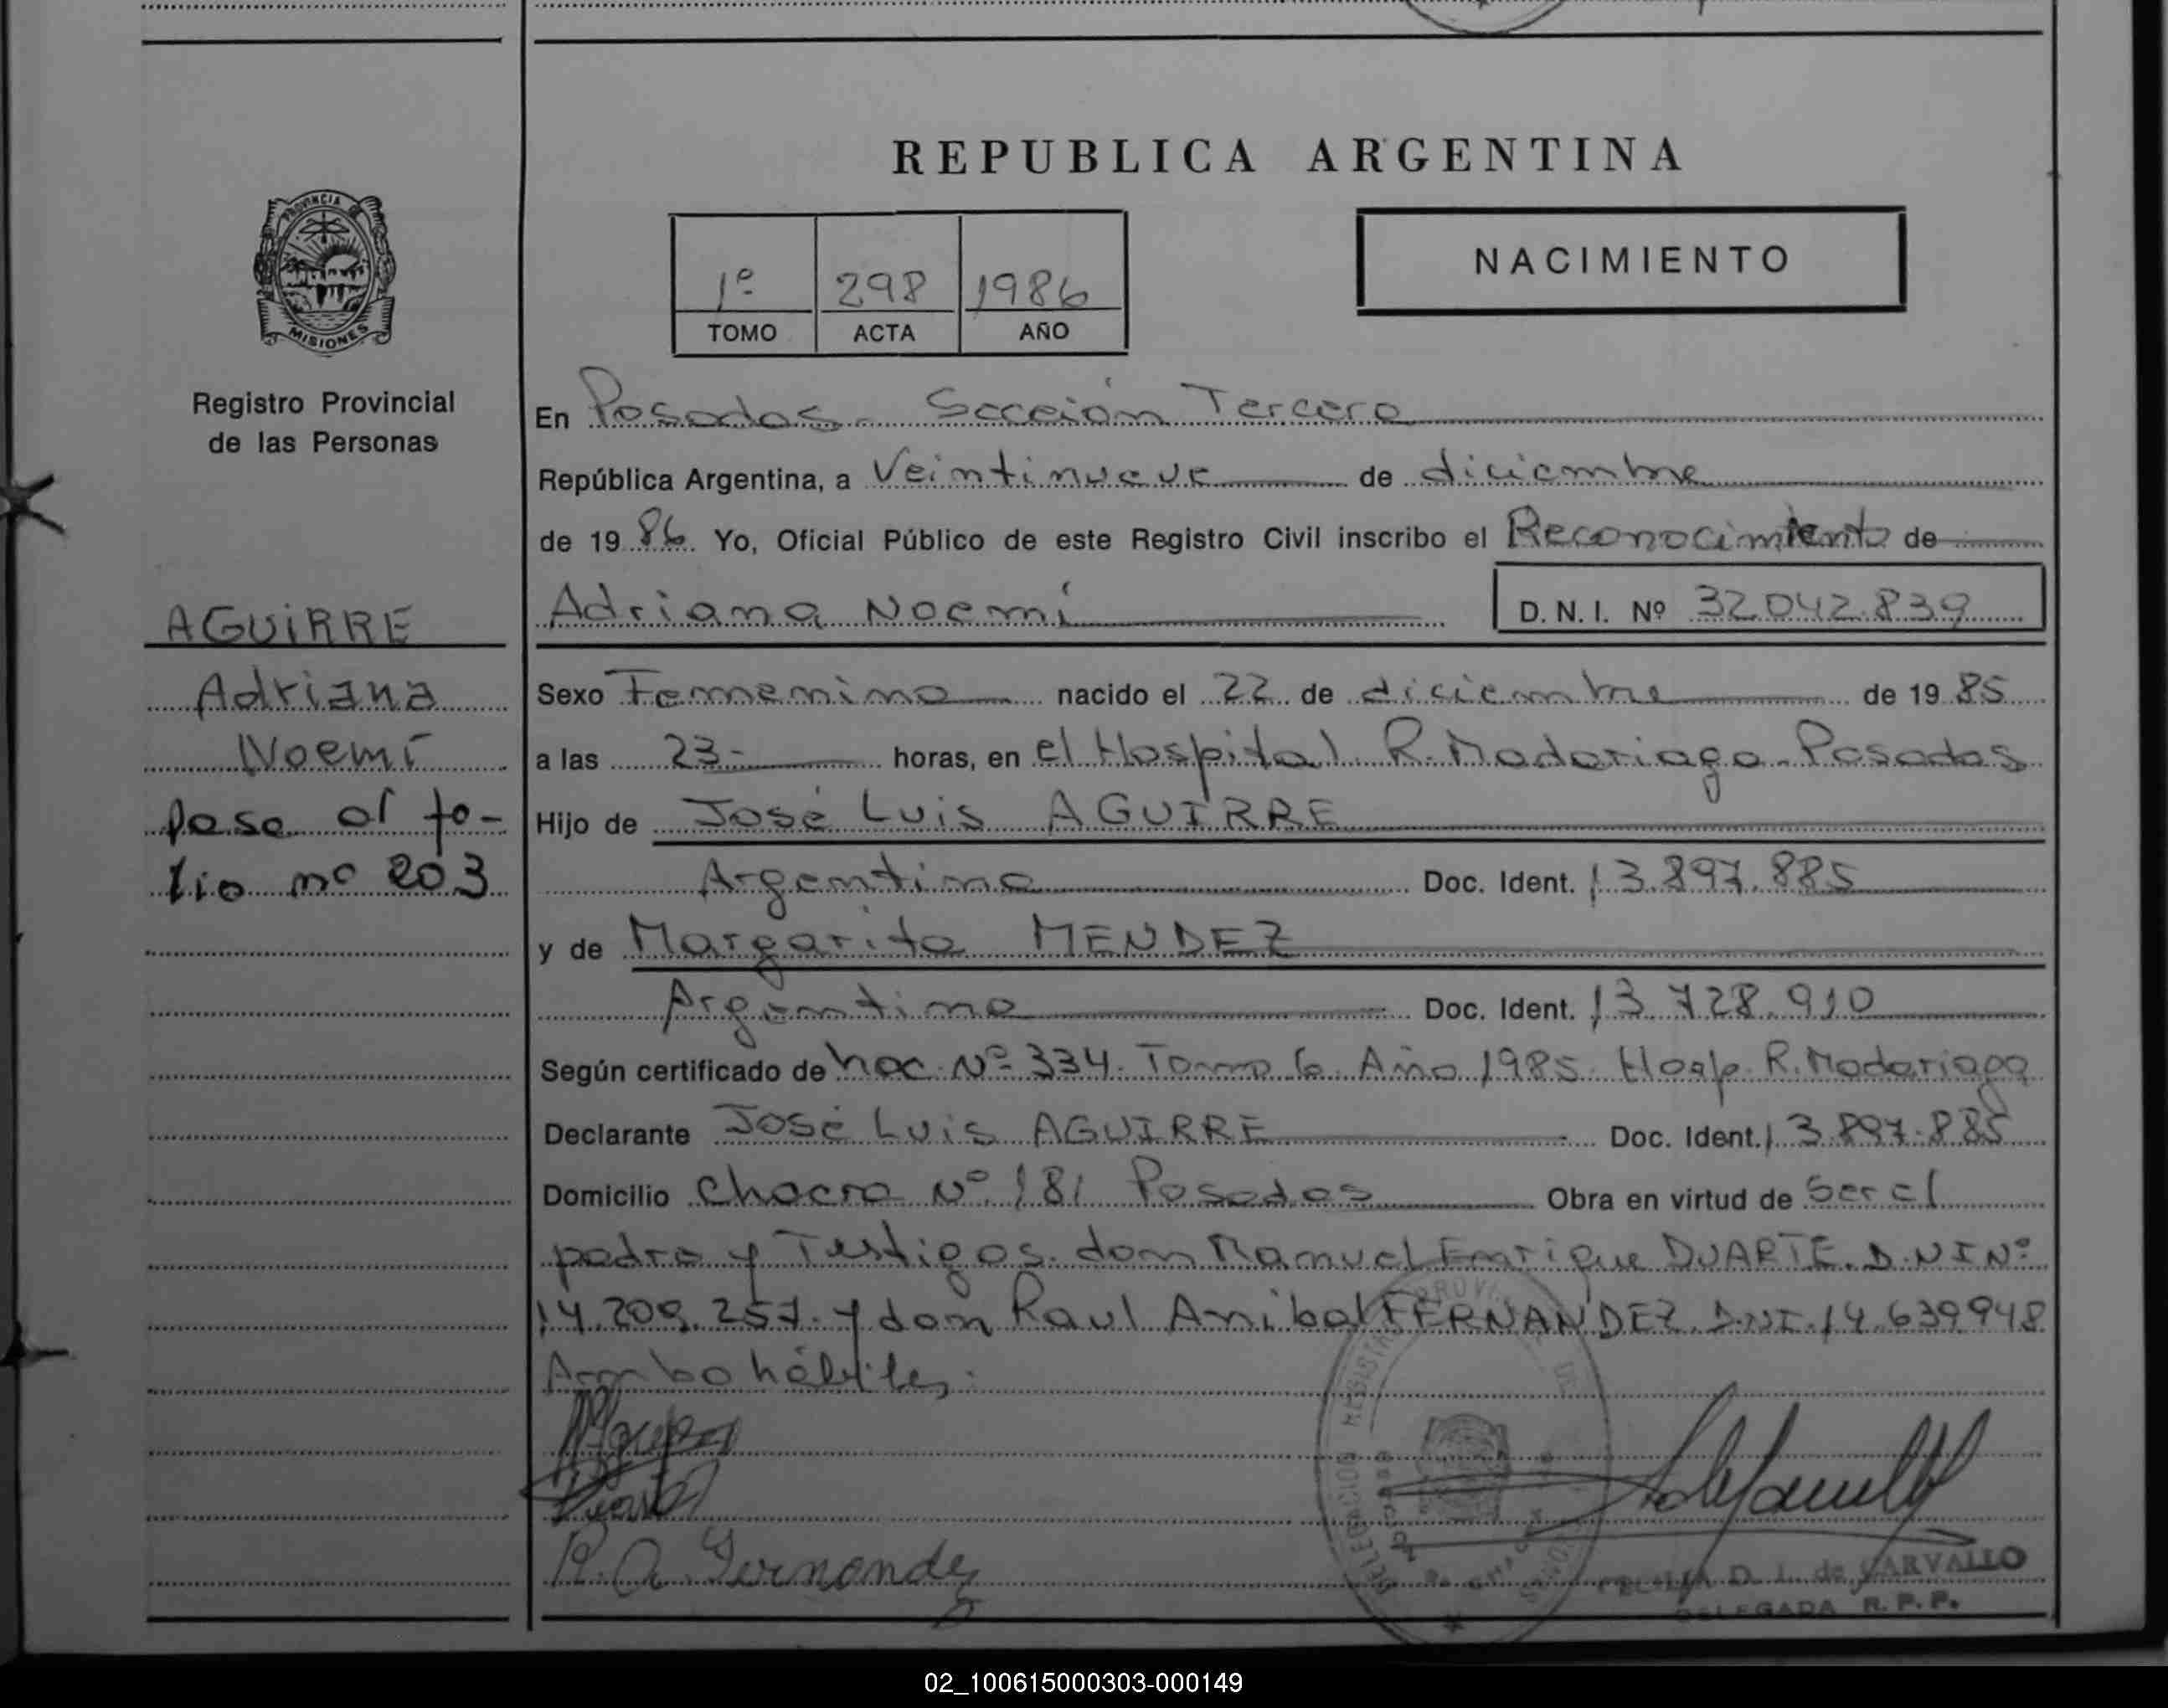 REPUBLICA ARGENTINA
PROVINCIA DE
MISIONES
Registro Provincial
de las Personas
1º 298 1986
TOMO ACTA AÑO
NACIMIENTO
En Posadas - Sección Tercera
República Argentina, a Veintinueve de diciembre
de 1986 Yo, Oficial Público de este Registro Civil inscribo el Reconocimiento de
Adriana Noemí D. N. I. Nº 32.042.839
AGUIRRE
Adriana
Noemí
pasa al fo-
lio nº 203
Sexo Femenino nacido el 22 de diciembre de 1985
a las 23- horas, en el Hospital R. Madariaga - Posadas
Hijo de José Luis AGUIRRE
Argentino Doc. Ident. 13.897.885
y de Margarita MENDEZ
Argentina Doc. Ident. 13.728.910
Según certificado de nac. Nº 334. Tomo 6 Año 1985. Hosp. R. Madariaga
Declarante José Luis AGUIRRE Doc. Ident. 13.897.885
Domicilio Chacra Nº 181 Posadas Obra en virtud de Ser el
padre y Testigos. don Manuel Enrique DUARTE. D.NI Nº
14.209.257. y don Raul Anibal FERNANDEZ. DNI. 14.639948
Ambo hábiles.
R. A. Fernandez
D. L. de CARVALLO
DELEGADA R. P. P.
02_100615000303-000149